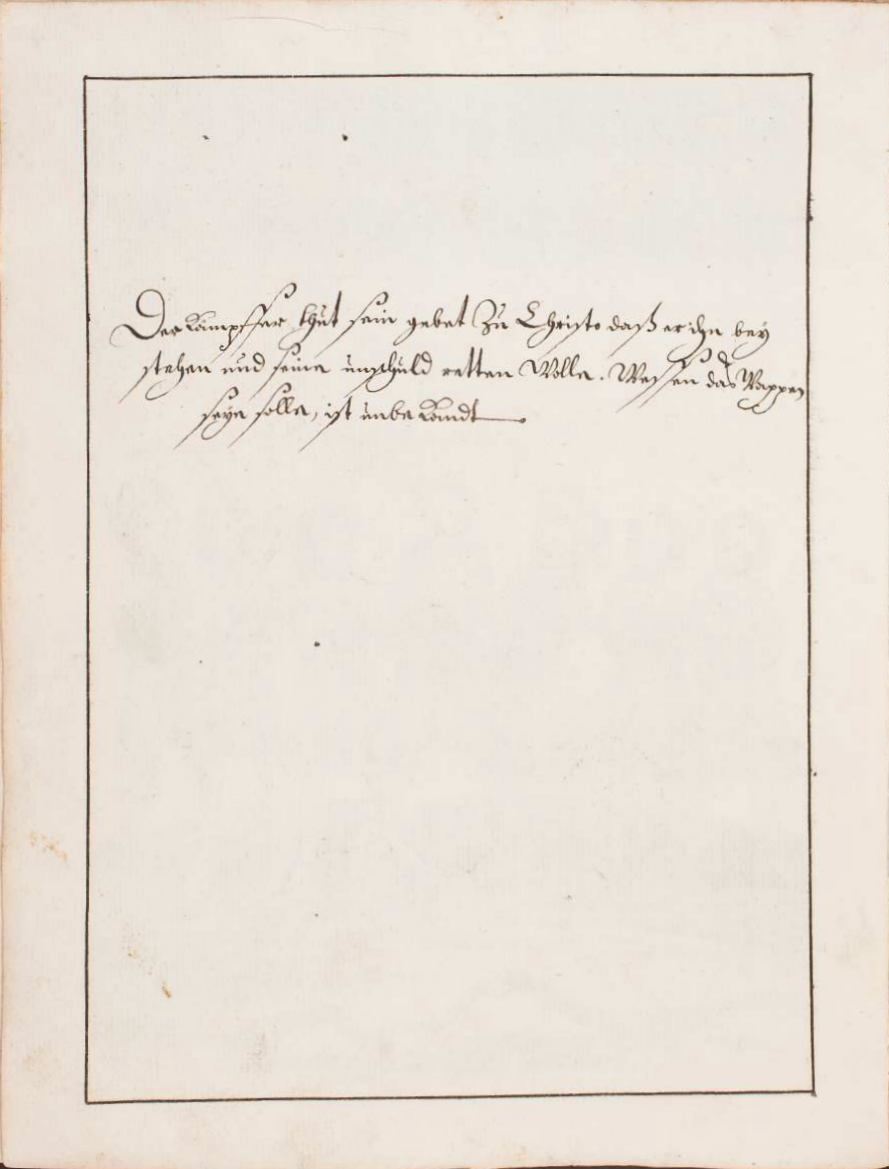 Der Kämpffer thut sein gebet Zu Christo daß er ihn bey
stehen und seine unschuld retten Wolle. Wessen das Wappen
seyn solle, ist unbekandt